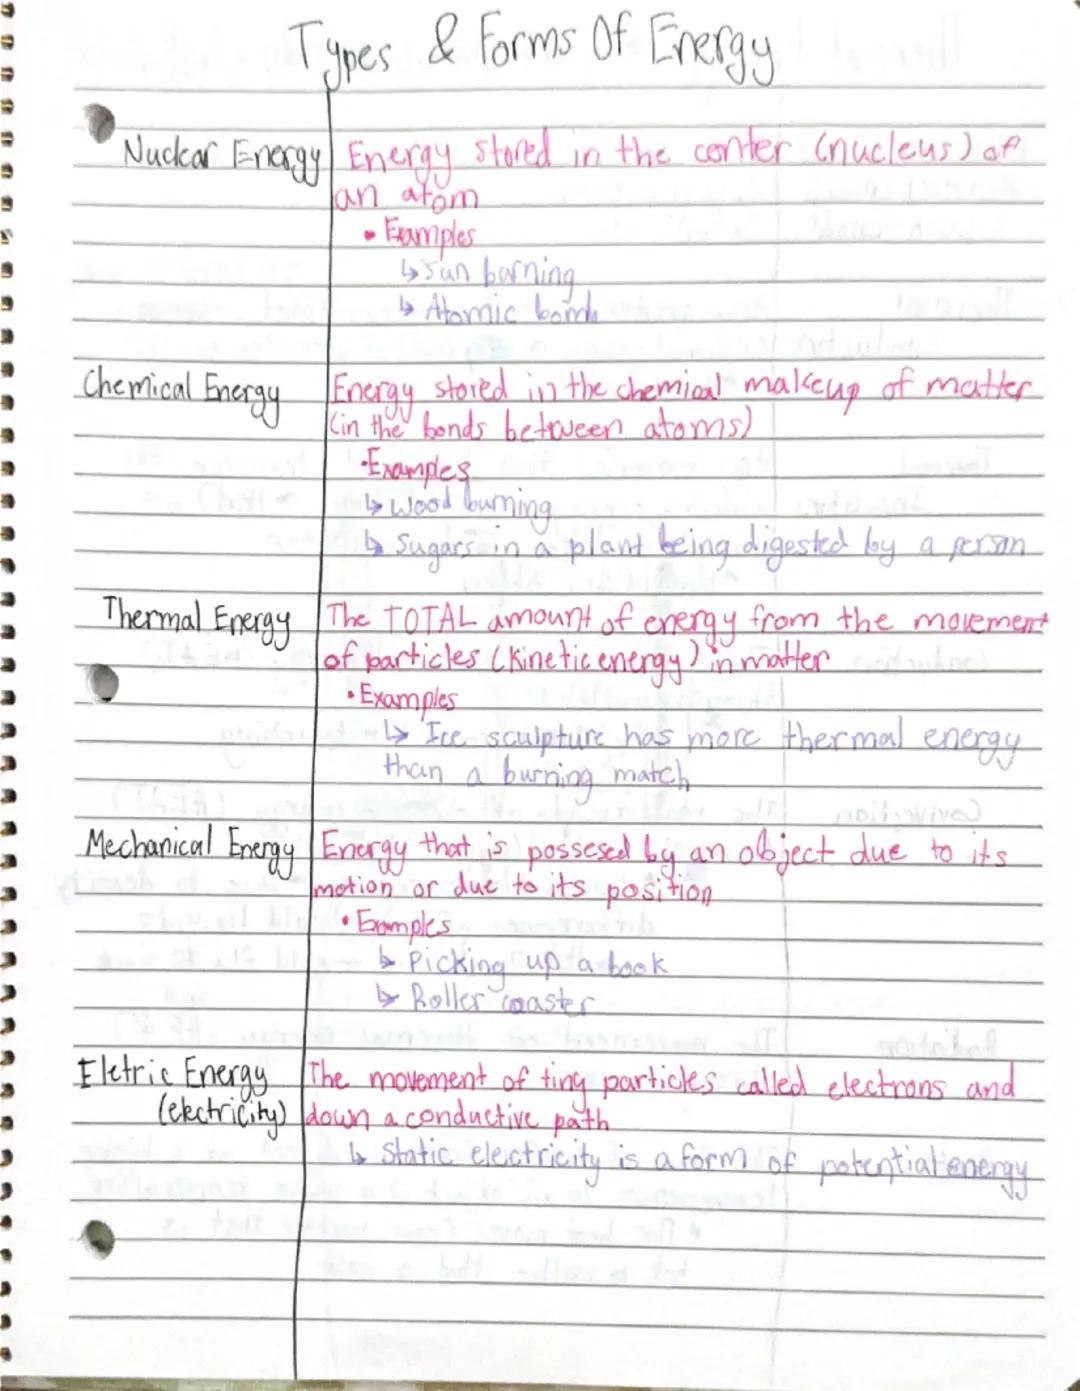 Types & Forms Of Energy
Nuclear Energy
Energy stored in the center (nucleus) of
an atom
• Examples
↳ Sun burning
↳ Atomic bomb
Chemical Energy
Energy stored in the chemical makeup of matter
(in the bonds between atoms)
• Examples
↳ Wood burning
↳ Sugars in a plant being digested by a person
Thermal Energy
The TOTAL amount of energy from the movement
of particles (kinetic energy) in matter
• Examples
↳ Ice sculpture has more thermal energy
than a burning match
Mechanical Energy
Energy that is possesed by an object due to its
motion or due to its position
• Examples
↳ Picking up a book
↳ Roller coaster
Eletric Energy
(electricity)
The movement of tiny particles called electrons and
down a conductive path
↳ Static electricity is a form of potential energy